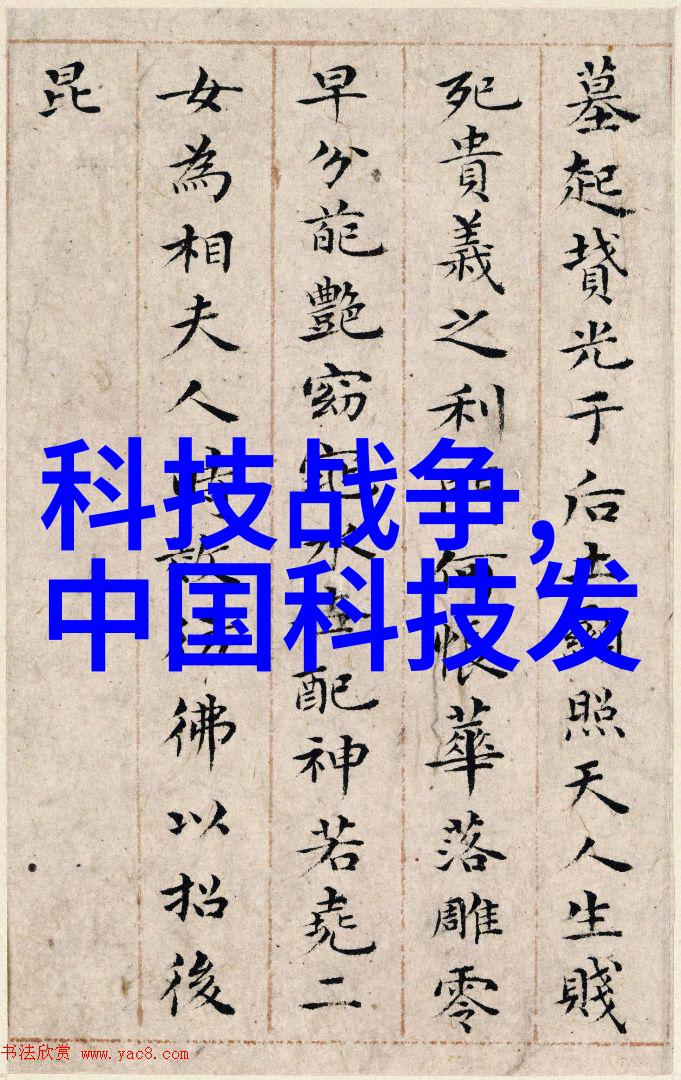 科技战争,
中国科技发
墓起墳光于后土照天人生賤
死貴義之利何悵華落雕零
早分葩艷窈配神若堯二
女為相夫人時效彿以招後
昆
书法欣赏 www.yac8.com